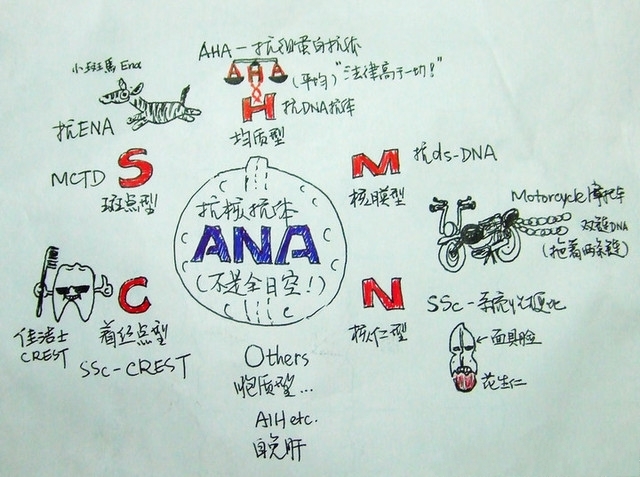 AHA－抗组蛋白抗体
AHA
(平均) "法律高于一切!"
H
抗DNA抗体
均质型
小斑馬 Ena
抗ENA
MCTD
S
斑点型
M
核膜型
抗ds-DNA
Motorcycle 摩托车
双链DNA
(拖着两条链)
抗核抗体
ANA
(不是全日空!)
佳洁士
CREST
C
着丝点型
SSc-CREST
N
核仁型
SSc－系统性硬化
←面具脸
花生仁
Others
胞质型...
AIH etc.
自免肝